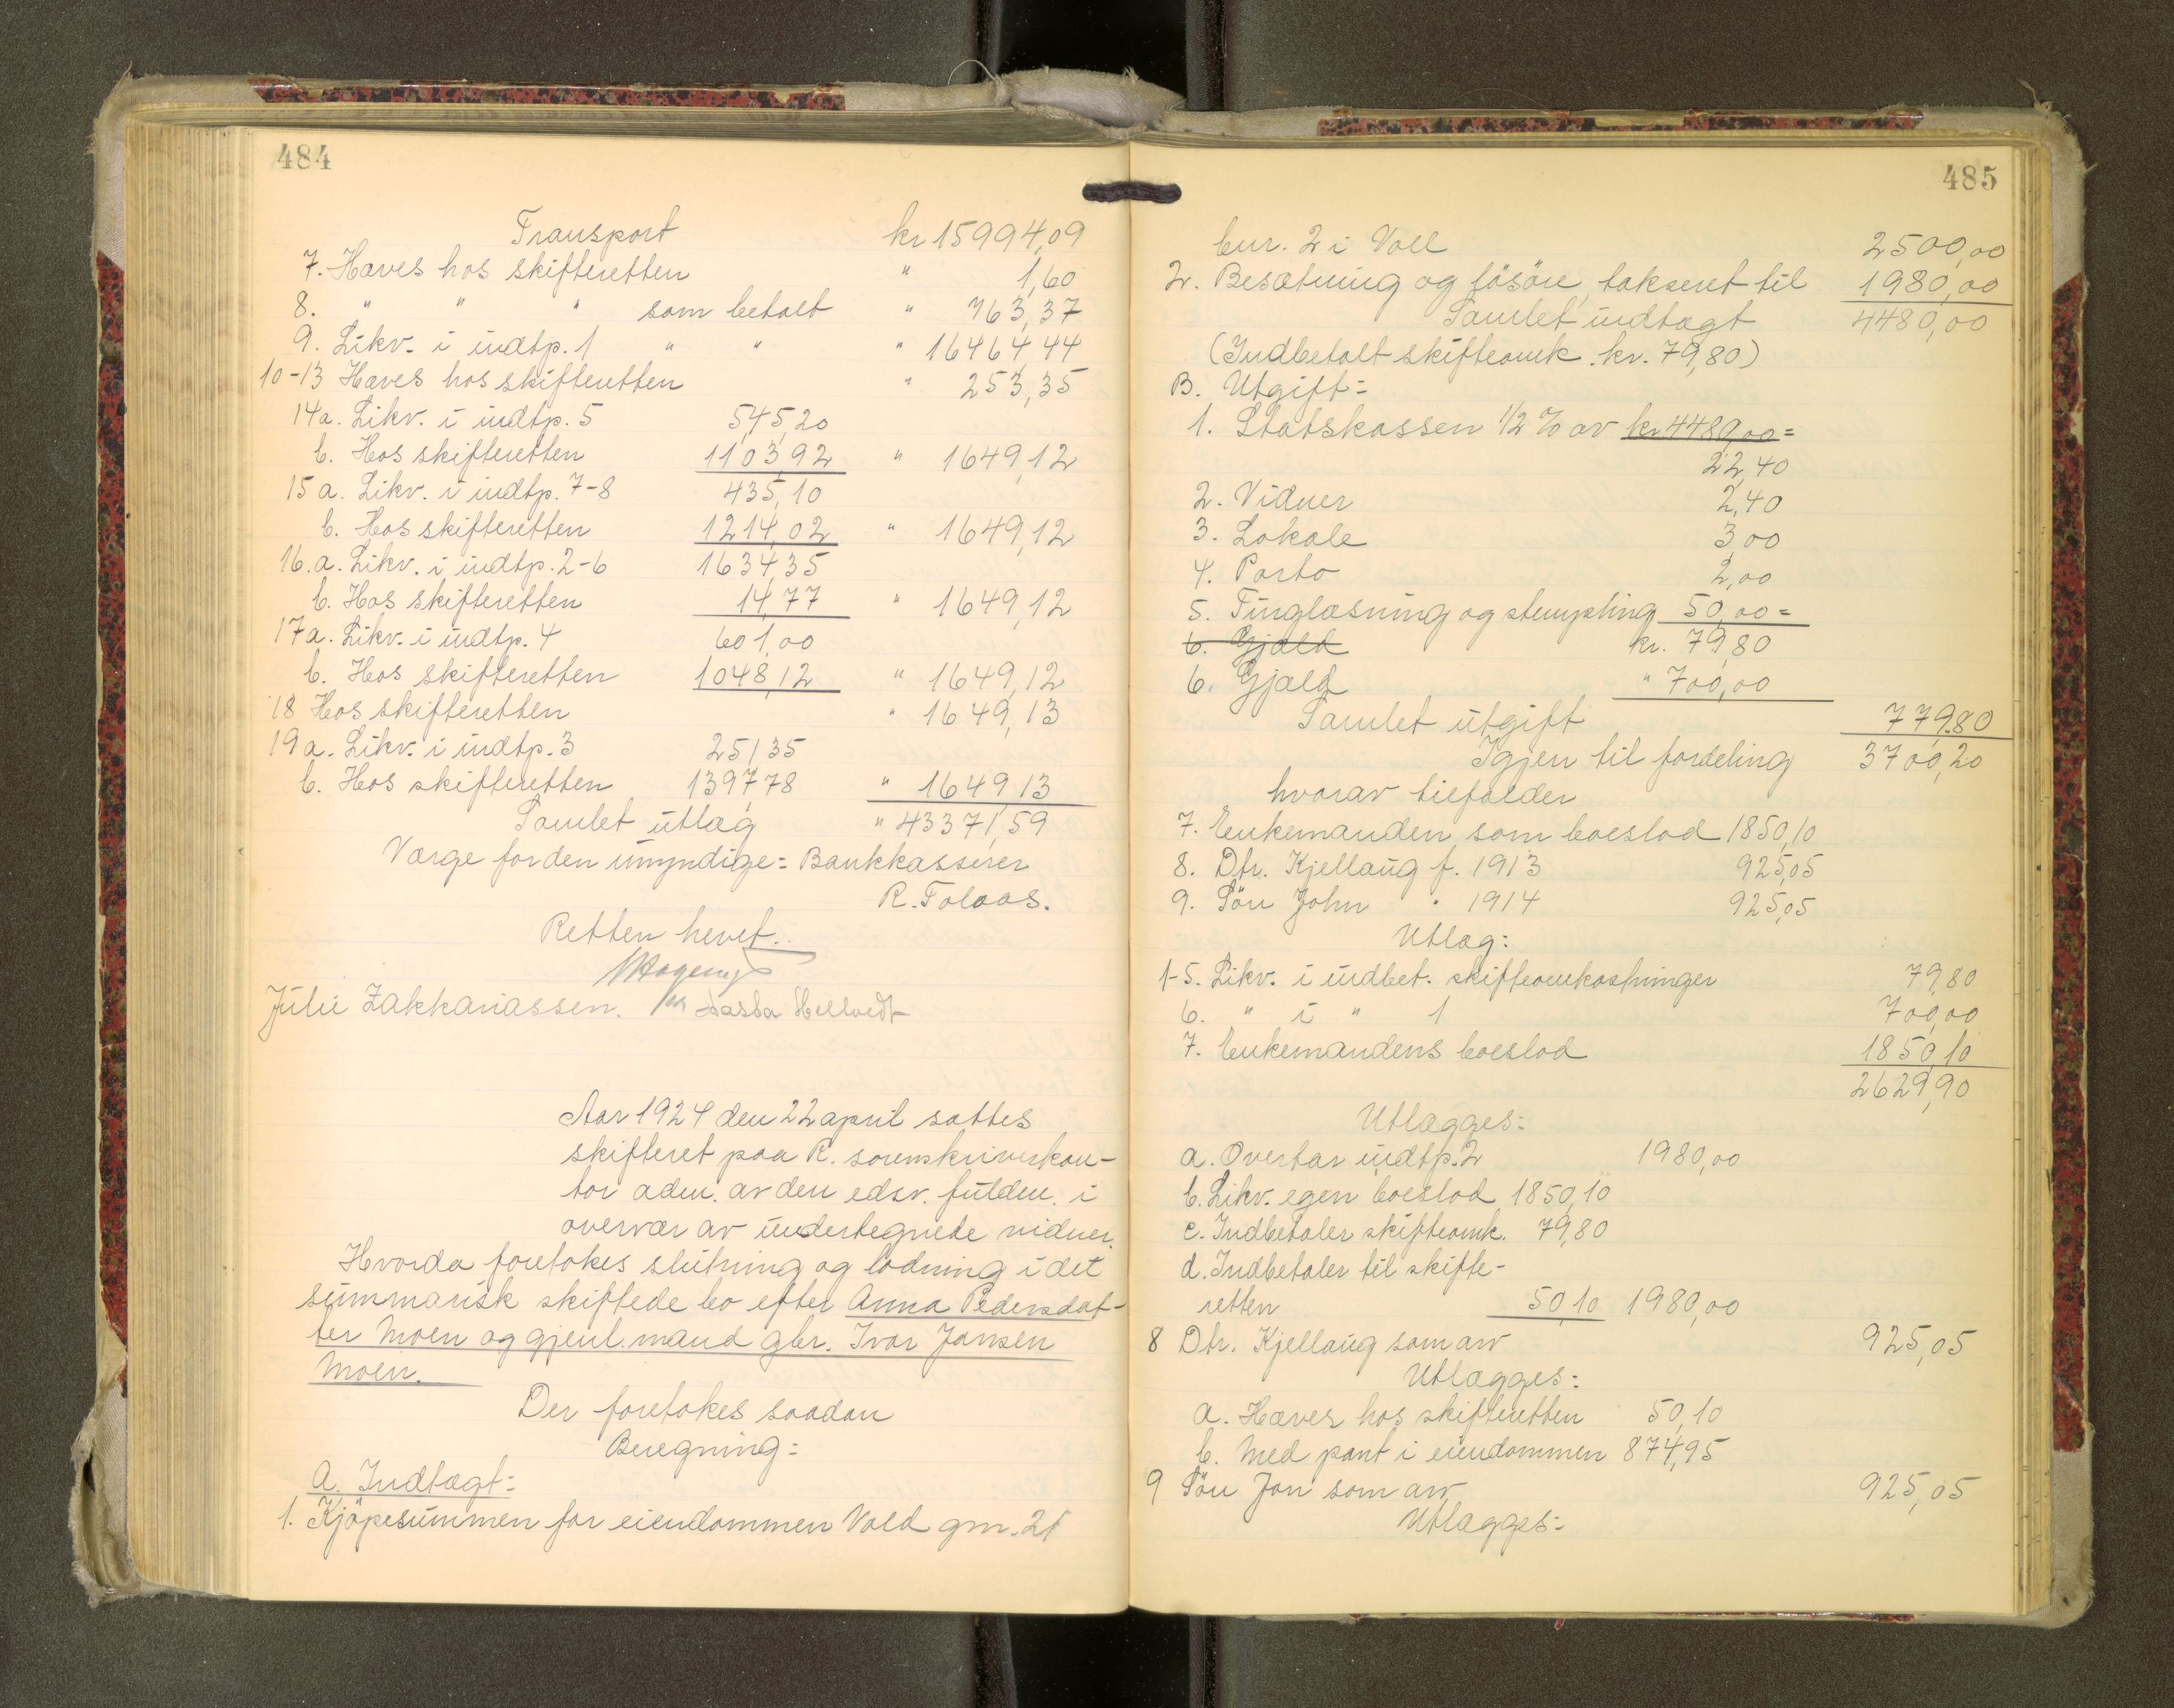 484
Transport kr 15994,09
7. Haves hos skifteretten " 1,60
8. " " " som betalt " 763,37
9. Likv. i indtp. 1 " " " 16464,44
10-13 Haves hos skifteretten " 253,35
14a. Likv. i indtp. 5 545,20
b. Hos skifteretten 1103,92 " 1649,12
15 a. Likv. i indtp. 7-8 435,10
b. Hos skifteretten 1214,02 " 1649,12
16.a. Likv. i indtp. 2-6 1634,35
b. Hos skifteretten 14,77 " 1649,12
17a. Likv. i indtp. 4 601,00
b. Hos skifteretten 1048,12 " 1649,12
18 Hos skifteretten " 1649,13
19a. Likv. i indtp. 3 251,35
b. Hos skifteretten 1397,78 " 1649,13
Samlet utlæg " 43371,59
Værge for den umyndige: Bankkasserer
R. Tolaas.
Retten hevet.
Julie Zakkariassen.
Aar 1924 den 22 april sattes
skifteret paa R. sorenskriverkon-
tor adm. av den edsv. fuldm. i
overvær av undertegnede vidner.
Hvorda foretokes slutning og lodning i det
summarisk skiftede bo efter Anna Pedersdat-
ter Moen og gjenl. mand gbr. Ivar Jansen
Moen.
Der foretokes saadan
Beregning:
A. Indtægt:
1. Kjöpesummen for eiendommen Vold gm. 21
485
bnr. 2 i Voll 2500,00
2. Besætning og lösöre, takseret til 1980,00
Samlet indtægt 4480,00
(Indbetalt skifteomk. kr. 79,80)
B. Utgift:
1. Statskassen 1/2 % av kr 4480,00 =
22,40
2. Vidner 2,40
3. Lokale 3,00
4. Porto 2,00
5. Tinglæsning og stempling 50,00 =
6. Gjæld kr. 79,80
6. Gjæld " 700,00
Samlet utgift 779,80
Igjen til fordeling 3700,20
hvorav tilfalder
7. Enkemanden som boeslod 1850,10
8. Dtr. Kjellaug f. 1913 925,05
9. Sön John " 1914 925,05
Utlæg:
1-5. Likv. i indbet. skifteomkostninger 79,80
6. " i " 1 700,00
7. Enkemandens boeslod 1850,10
2629,90
Utlægges:
a. Overtar indtp. 2 1980,00
b. Likv. egen boeslod 1850,10
c. Indbetaler skifteomk. 79,80
d. Indbetaler til skifte-
retten 50,10 1980,00
8 Dtr. Kjellaug som arv 925,05
Utlægges:
a. Hæver hos skifteretten 50,10
b. Med pant i eiendommen 874,95
9 Sön Jon som arv 925,05
Utlægges: